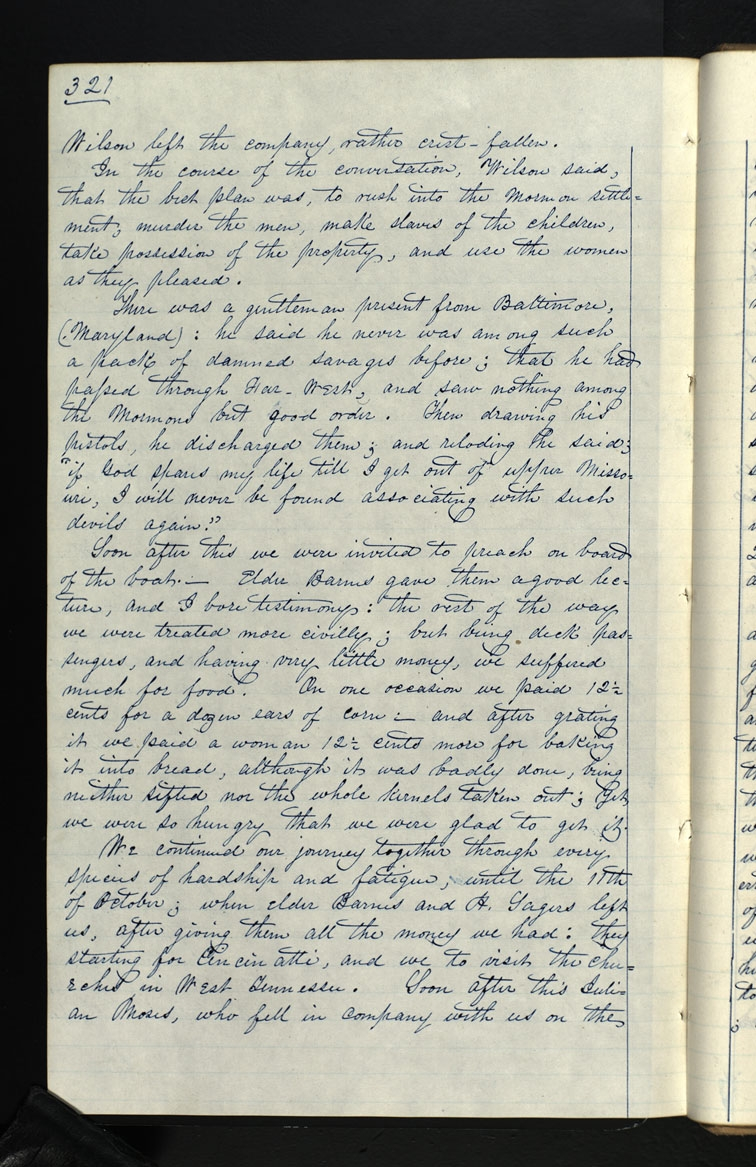 321
Wilson left the company, rather crest-fallen.
In the course of the conversation, Wilson said,
that the best plan was, to rush into the Mormon settle=
ment, murder the men, make slaves of the children,
take possession of the property, and use the women
as they pleased.
There was a gentleman present from Baltimore,
(Maryland): he said he never was among such
a pack of damned savages before; that he had
passed through Far-West, and saw nothing among
the Mormons but good order. Then drawing his
pistols, he discharged them; and reloding he said;
"if God spares my life till I get out of upper Misso=
uri, I will never be found associating with such
devils again."
Soon after this we were invited to preach on board
of the boat.— Elder Barnes gave them a good lec=
ture, and I bore testimony: the rest of the way
we were treated more civilly; but being deck pas=
sengers, and having very little money, we suffered
much for food. On one occasion we paid 12½
cents for a dozen ears of corn:— and after grating
it we paid a woman 12½ cents more for baking
it into bread, although it was badly done, being
neither sifted nor the whole kernels taken out; Yet
we were so hungry that we were glad to get it.
We continued our journey together through every
species of hardship and fatigue, until the 11th
of October; when elder Barnes and H. Sagers left
us, after giving them all the money we had: they
starting for Cincinatti, and we to visit the chu=
rches in West Tennessee. Soon after this Juli=
an Moses, who fell in company with us on the